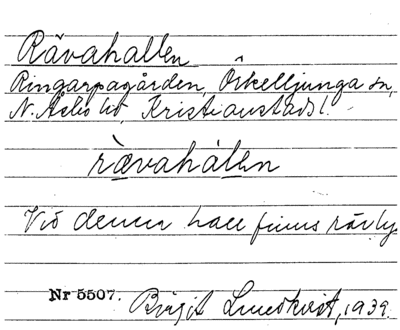 Rävahallen
Ringarpagården, Örkelljunga sn,
N. Åsbo hd, Kristianstads l.
rævahàlen
Vid denna hall finns rävly.
Nr 5507. Birgit Lundkvist, 1939.